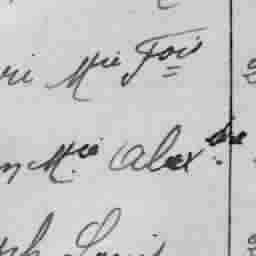 ri Mie Fois
n M.ie Alex.dre
ph Louis